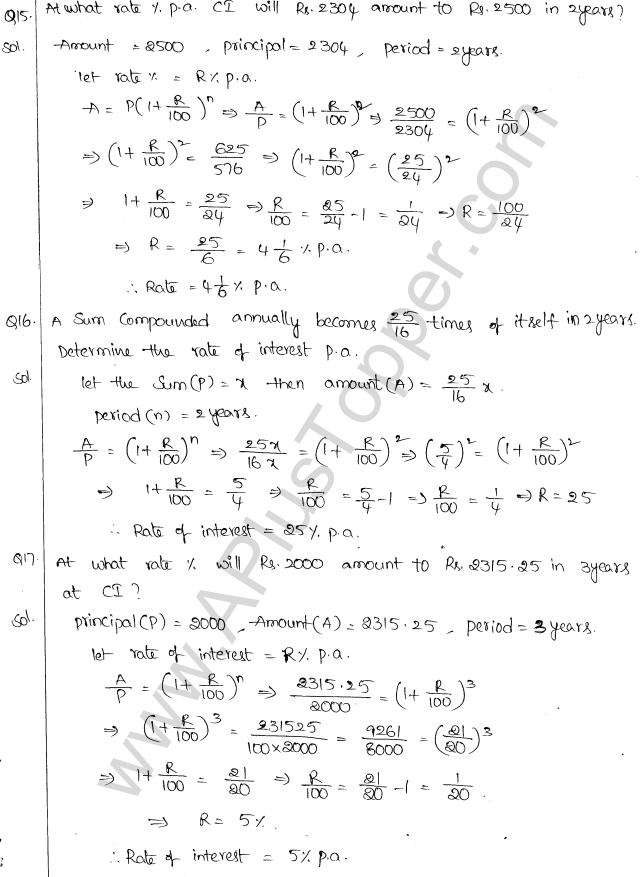 Q15. At what rate % p.a. CI will Rs. 2304 amount to Rs. 2500 in 2years?
Sol. Amount = 2500, principal = 2304, period = 2years.
let rate % = R% p.a.
A = P(1+R/100)^n ⇒ A/P = (1+R/100)^2 ⇒ 2500/2304 = (1+R/100)^2
⇒ (1+R/100)^2 = 625/576 ⇒ (1+R/100)^2 = (25/24)^2
⇒ 1+R/100 = 25/24 ⇒ R/100 = 25/24 - 1 = 1/24 ⇒ R = 100/24
⇒ R = 25/6 = 4 1/6 % p.a.
∴ Rate = 4 1/6 % p.a.
Q16. A Sum Compounded annually becomes 25/16 times of itself in 2years.
Determine the rate of interest p.a.
Sol. let the Sum(P) = x then amount(A) = 25/16 x.
period(n) = 2years.
A/P = (1+R/100)^n ⇒ 25x/16x = (1+R/100)^2 ⇒ (5/4)^2 = (1+R/100)^2
⇒ 1+R/100 = 5/4 ⇒ R/100 = 5/4 - 1 ⇒ R/100 = 1/4 ⇒ R = 25
∴ Rate of interest = 25% p.a.
Q17. At what rate % will Rs. 2000 amount to Rs. 2315.25 in 3years
at CI?
Sol. principal(P) = 2000, Amount(A) = 2315.25, period = 3years.
let rate of interest = R% p.a.
A/P = (1+R/100)^n ⇒ 2315.25/2000 = (1+R/100)^3
⇒ (1+R/100)^3 = 231525/100×2000 = 9261/8000 = (21/20)^3
⇒ 1+R/100 = 21/20 ⇒ R/100 = 21/20 - 1 = 1/20.
⇒ R = 5%.
∴ Rate of interest = 5% p.a.
www.APlusTopper.com